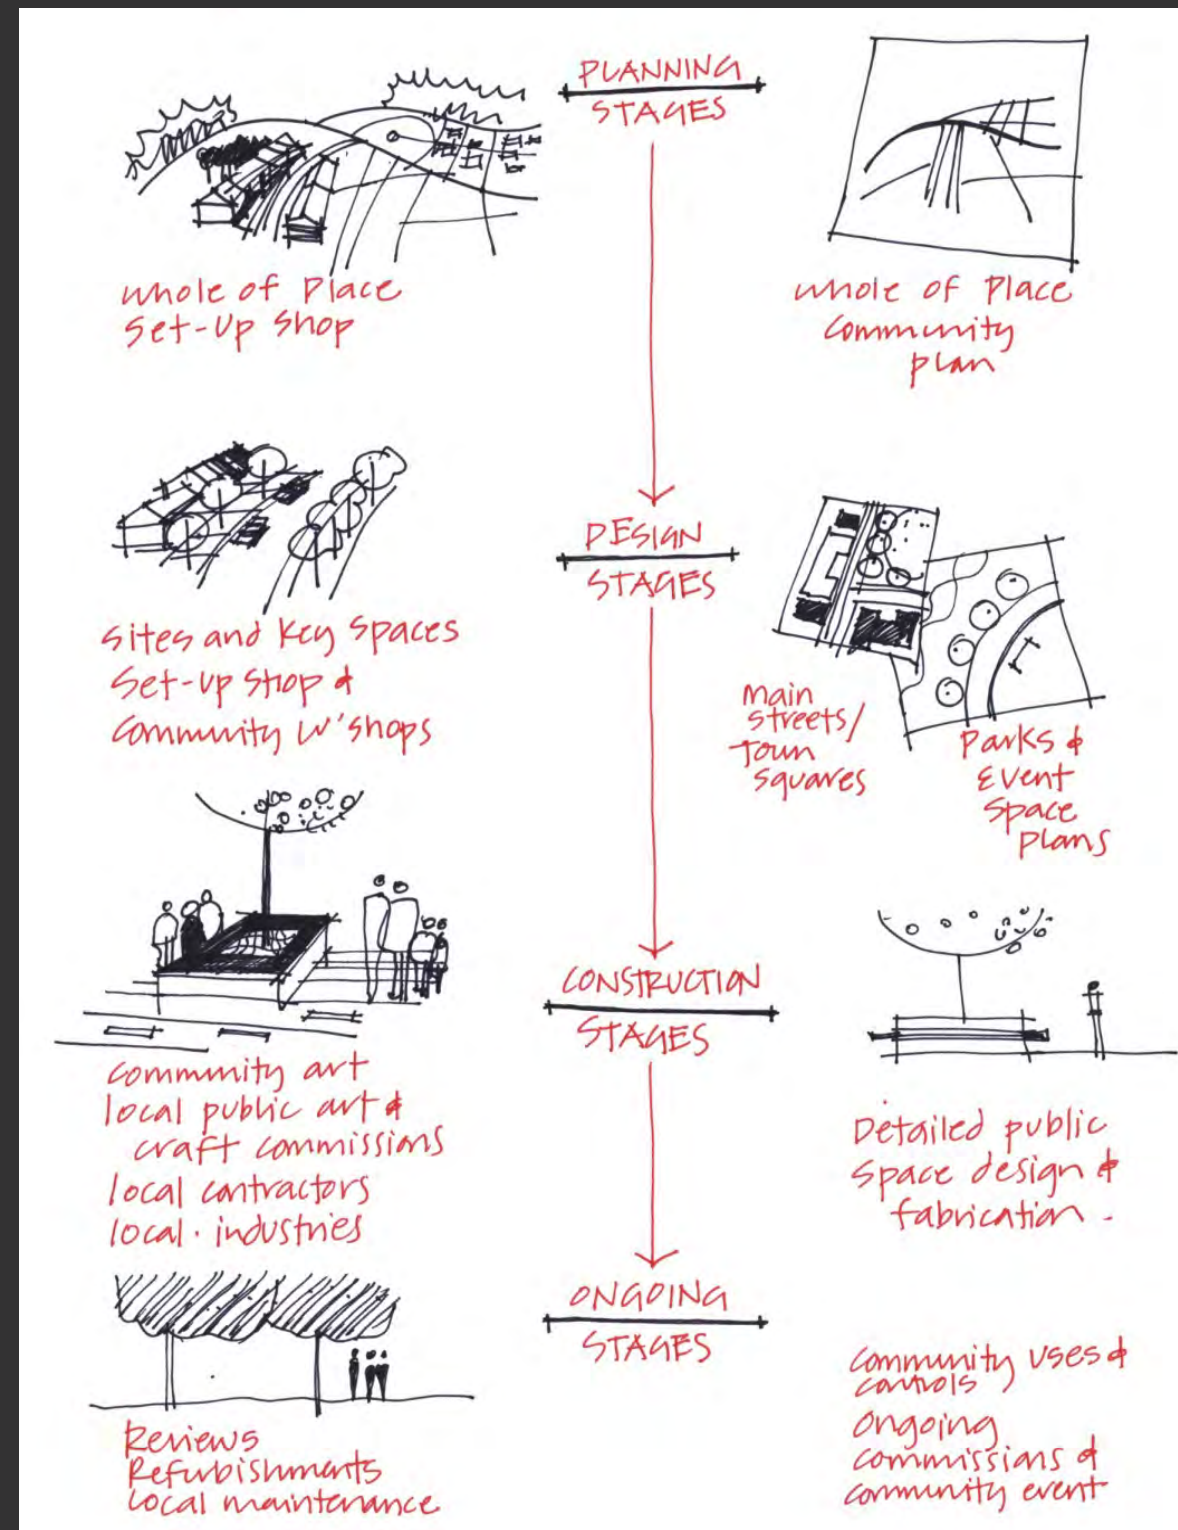 PLANNING
STAGES
whole of Place
Set-Up Shop
whole of Place
Community
plan
DESIGN
STAGES
Sites and Key Spaces
Set-up Shop &
Community W'shops
Main
streets/
Town
Squares
Parks &
Event
Space
plans
CONSTRUCTION
STAGES
Community art
local public art &
craft commissions
local contractors
local. industries
Detailed public
Space design &
fabrication.
ONGOING
STAGES
Reviews
Refurbishments
Local maintenance
Community uses &
controls
Ongoing
commissions &
community event